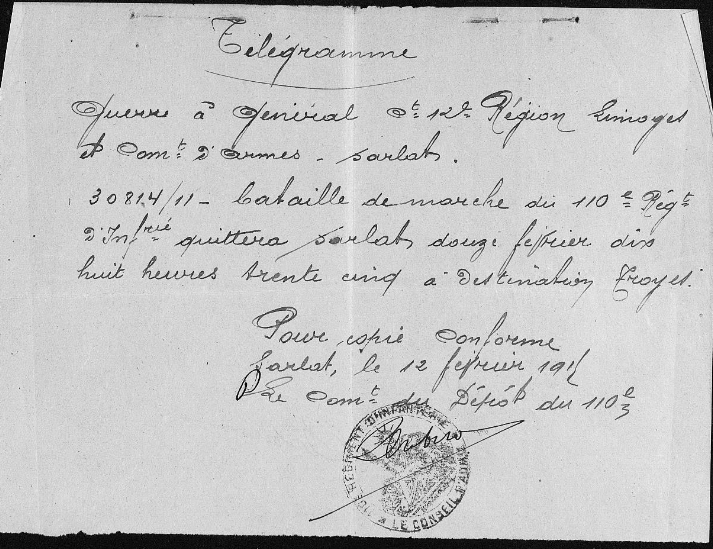 Télégramme
Guerre à Général Ct 12e Région Limoges
et Comt d'Armes - Sarlat.
30814/11 - bataille de marche du 110e Régt
d'Infrie quittera Sarlat douze février dix
huit heures trente cinq à destination Troyes.
Pour copie conforme
Sarlat, le 12 février 191
P Le Comt du Dépôt du 110e
110e REGIMENT D'INFANTERIE
LE CONSEIL D'ADM